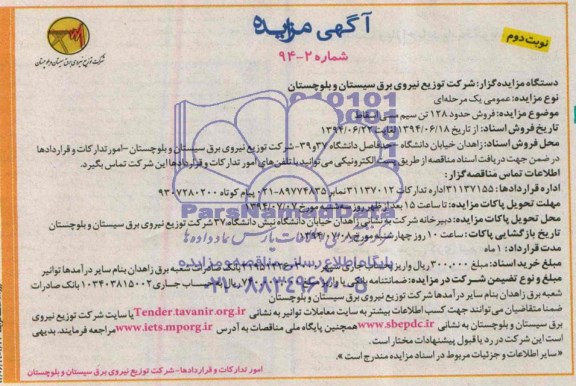 آگهی مزایده
نوبت دوم
شماره ۲-۹۴
شرکت توزیع نیروی برق سیستان و بلوچستان
دستگاه مزایده گزار: شرکت توزیع نیروی برق سیستان و بلوچستان
نوع مزایده: عمومی یک مرحله‌ای
موضوع مزایده: فروش حدود ۱۲۸ تن سیم مسی اسقاط
تاریخ فروش اسناد: از تاریخ ۱۳۹۴/۰۶/۱۸ لغایت ۱۳۹۴/۰۶/۲۲
محل فروش اسناد: زاهدان خیابان دانشگاه - حدفاصل دانشگاه ۳۷ و ۳۹- شرکت توزیع نیروی برق سیستان و بلوچستان - امور تدارکات و قراردادها
در ضمن جهت دریافت اسناد مناقصه از طریق پست الکترونیکی می‌توانید با تلفن‌های امور تدارکات و قراردادها این شرکت تماس بگیرد.
اطلاعات تماس مناقصه گزار:
اداره قراردادها: ۳۱۱۳۷۱۵۵ اداره تدارکات ۳۱۱۳۷۰۱۲ نمابر ۸۹۷۷۴۸۳۵-۰۲۱ پیام کوتاه ۹۳۰۷۲۸۰۲۰۰
مهلت تحویل پاکات مزایده: تا ساعت ۱۵ بعد از ظهر روز سه شنبه مورخ ۱۳۹۴/۰۷/۰۷
محل تحویل پاکات مزایده: دبیرخانه شرکت به نشانی زاهدان خیابان دانشگاه نبش دانشگاه ۳۷ شرکت توزیع نیروی برق سیستان و بلوچستان
تاریخ بازگشایی پاکات: ساعت ۱۰ روز چهارشنبه مورخ ۱۳۹۴/۰۷/۰۸
مدت قرارداد: ۱ ماه
مبلغ خرید اسناد: ۳۰۰،۰۰۰ ریال واریز بحساب جاری سپهر بانک صادرات شعبه برق زاهدان بنام سایر درآمدها توانیر
مبلغ و نوع تضمین شرکت در مزایده: ضمانتنامه بانکی یا واریز مبلغ ریال به حساب جاری ۱۰۳۴۰۳۸۱۵۰۰۲ بانک صادرات
شعبه برق زاهدان بنام سایر درآمدها شرکت توزیع نیروی برق سیستان و بلوچستان
ضمنا متقاضیان می‌توانند جهت کسب اطلاعات بیشتر به سایت معاملات توانیر به نشانی Tender.tavanir.org.ir یا سایت شرکت توزیع نیروی
برق سیستان و بلوچستان به نشانی www.sbepdc.ir همچنین پایگاه ملی مناقصات به آدرس www.iets.mporg.ir مراجعه فرمایند. بدیهی
است این شرکت در رد یا قبول پیشنهادات مختار است.
«سایر اطلاعات و جزئیات مربوط در اسناد مزایده مندرج است.»
امور تدارکات و قراردادها - شرکت توزیع نیروی برق سیستان و بلوچستان
ParsNamadData
پایگاه اطلاع رسانی مناقصه و مزایده
۰۲۱-۸۸۳۴۹۶۷۰-۵